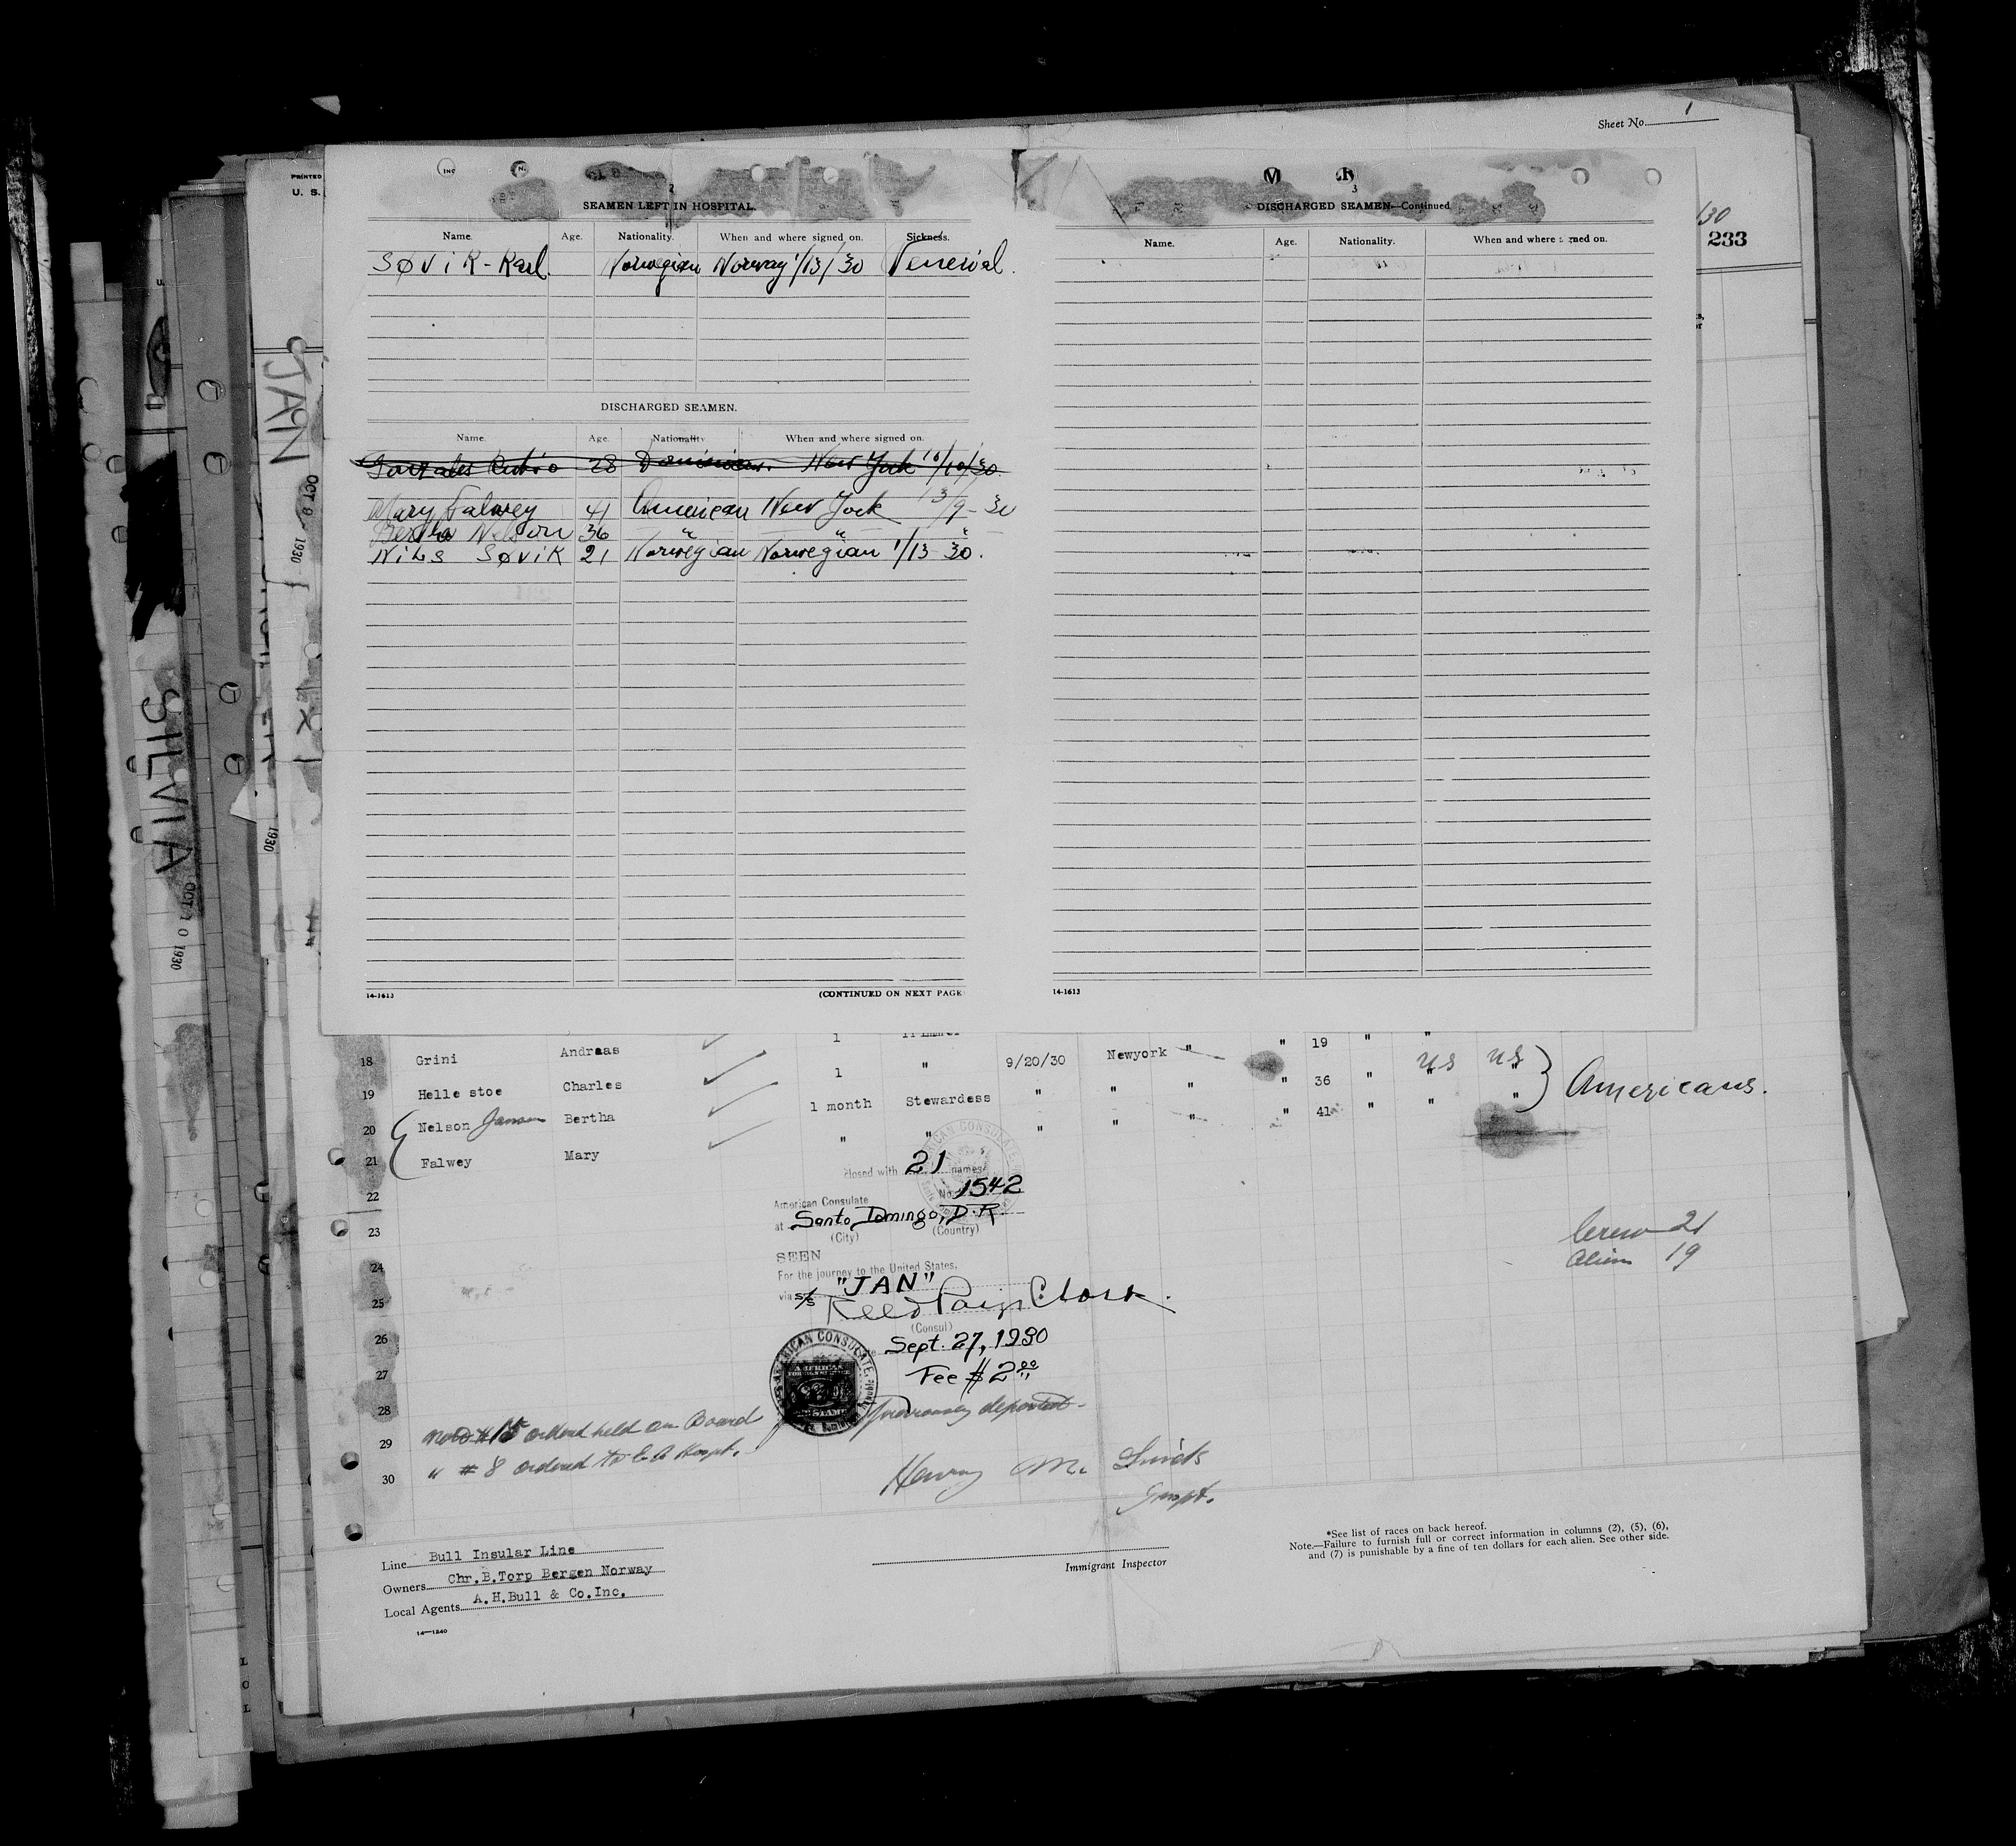 Sheet No. 1
PRINTED
U. S.
30
233
INC
N.
2
SEAMEN LEFT IN HOSPITAL.
Name. Age. Nationality. When and where signed on. Sickness.
SØVIK - Karl. Norwegian Norway 1/13/30 Venerial.
DISCHARGED SEAMEN.
Name. Age. Nationality. When and where signed on.
28 Dominican. New York 10/10/30.
Mary Falwey 41 American New York 9-30
Bertha Nelson 36 " " "
NiLS SØVIK 21 Norwegian Norwegian 1/13 30.
14-1613 (CONTINUED ON NEXT PAGE
3
DISCHARGED SEAMEN—Continued
Name. Age. Nationality. When and where signed on.
14-1613
JAN
OCT 9 - 1930
1930
SILVIA
OCT 10 1930
18 Grini Andreas 1 19 " "
19 Helle stoe Charles 1 " 9/20/30 Newyork " " 36 " US US
20 Nelson Bertha 1 month Stewardess " " " " 41 " " "
21 Falwey Mary " " " " "
Americans.
22
23
24
25
26
27
28
29
30
closed with 21 names
No. 1542
American Consulate
at Santo Domingo, D.R.
(City) (Country)
SEEN
For the journey to the United States,
via S/S "JAN"
Reed Paige Clark.
(Consul)
Sept. 27, 1930
Fee $2.00
AMERICAN CONSULATE
Crew 21
Alien 19
Note #15 ordered held on Board previously deported.
" # 8 ordered to
Henry M.
Inspt.
Line Bull Insular Line
Owners Chr.B.Torp Bergen Norway
Local Agents A.H.Bull & Co.Inc.
14—1240
Immigrant Inspector
*See list of races on back hereof.
Note.—Failure to furnish full or correct information in columns (2), (5), (6),
and (7) is punishable by a fine of ten dollars for each alien. See other side.